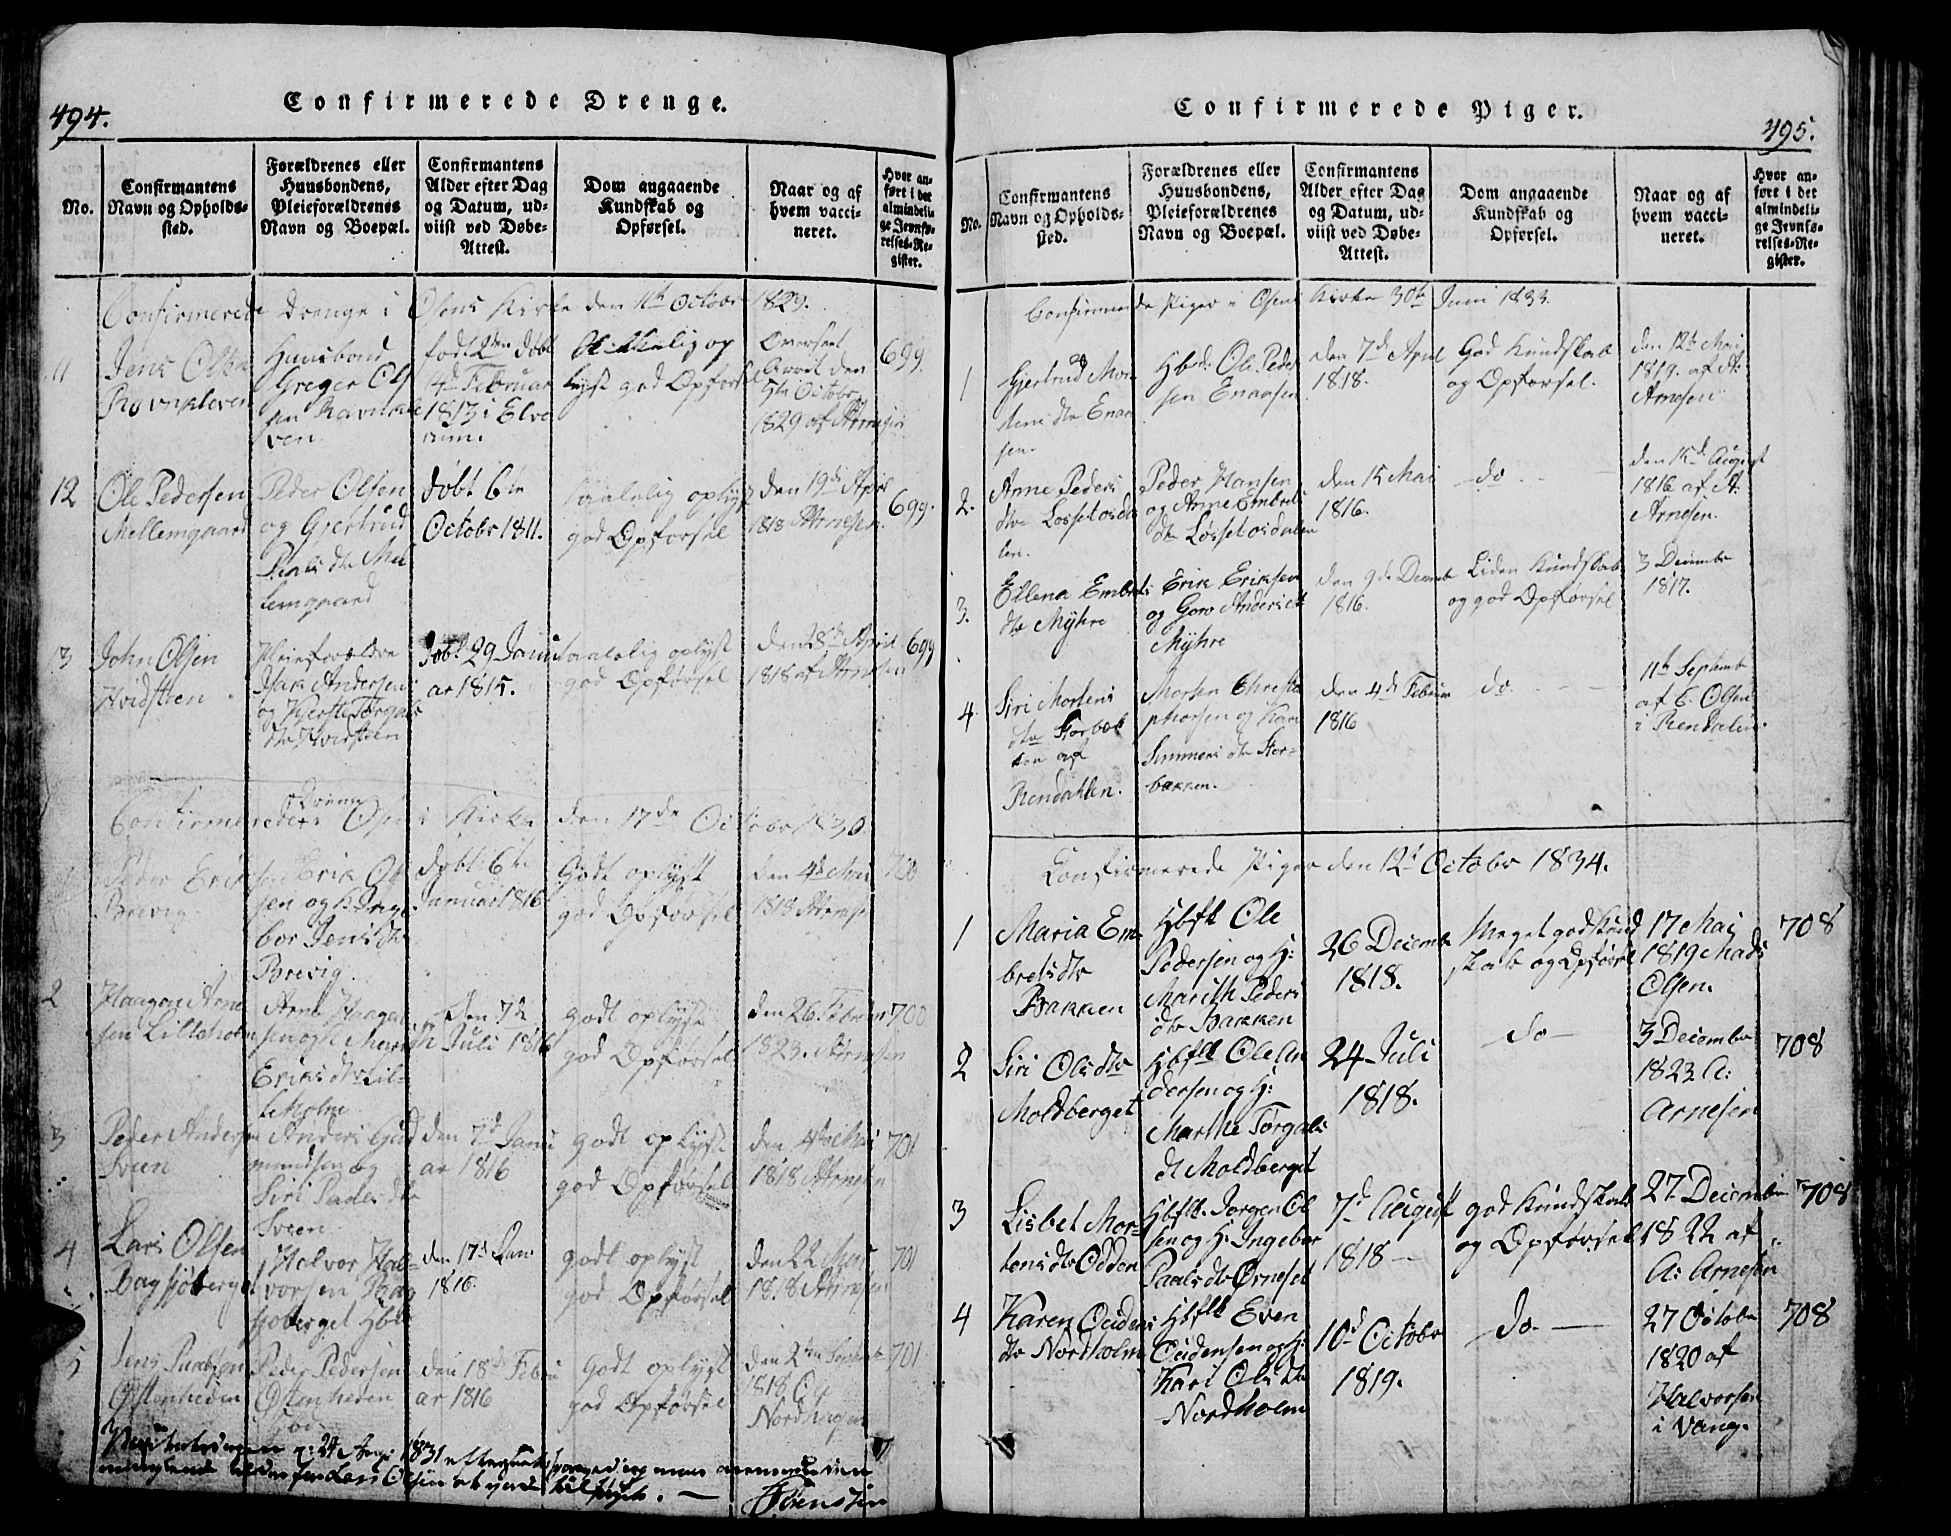 494.
Confirmerede Drenge.
No.
Confirmantens
Navn og Opholds-
sted.
Forældrenes eller
Huusbondens,
Pleieforældrenes
Navn og Boepæl.
Confirmantens
Alder efter Dag
og Datum, ud-
viist ved Døbe-
Attest.
Dom angaaende
Kundskab og
Opførsel.
Naar og af
hvem vacci-
neret.
Hvor an-
ført i det
almindeli-
ge Jevnfø-
relses-Re-
gister.
Confirmerede Drenge i Osens Kirke den 11te Octobr 1829.
11
Jens Olsen
Ravnkleven
Huusbond
Greger Ols
sen Ravnkle
ven
født 2den døbt
14de Februar
1813 i Elve
rum.
lig op
lyst god Opførsel
Overseet
den
5te October
1829 af Arnesen
699.
12
Ole Pedersen
Mellemgaard
Peder Olsen
og Gjertrud
Pauls dtr Mel
lemgaard
døbt 6te
Octobr 1811.
Taalelig oplyst
god Opførsel
den 19de April
1818 Arnesen.
699.
13
John Olsen
Hvidsteen
Pleieforældre
Isak Andersen
og Kjersti Torgals
dtr Hvidsteen
Døbt 29 Janu
ar 1815.
taalelig oplyst
god Opførsel
den 28de April
1818 af Arnesen
699
Confirmerede Drenge i Osens Kirke den 17de Octobr 1830
1
Peder Erik
sen
Brevig.
Erik Ol
sen og K. Inge
bor Jens dtr
Brevig.
døbt 6te
Januar 1816
Godt oplyst
god Opførsel
den 4de Mai
1818 Arnesen
700
2
Haagen Arne
sen Lilleholm
Arne Haagen
sen og K. Marith
Eriks dtr Lil-
leholm
den 7de
Juli 1816
godt oplyst
god Opførsel
den 26. Februar
1823. Arnesen
700
3
Peder Andersen
Sveen
Anders Gud
mundsen og
Siri Peders dtr
Sveen
den 7d Janu
ar 1816
godt oplyst
god Opførsel
den 4de Mai
1818 Arnesen
701
4
Lars Olsen
Bagsjøberget
Halvor Hal-
vorsen Bag
sjøberget Hbd
den 17d Jan
1816.
godt oplyst
god Opførsel
den 22 Mai
1818 Arnesen
701
5
Jens Pedersen
Østenheden
Peder Pedersen
Østenheden
den 18d Febru
ar 1816
Godt oplyst
god Opførsel
den 2den Septembr
1818
Nordhagen
701.
1831
Lars Olsen
Confirmerede Piger.
495.
No.
Confirmantens
Navn og Opholds-
sted.
Forældrenes eller
Huusbondens,
Pleieforældrenes
Navn og Boepæl.
Confirmantens
Alder efter Dag
og Datum, ud-
viist ved Døbe-
Attest.
Dom angaaende
Kundskab og
Opførsel.
Naar og af
hvem vacci-
neret.
Hvor an-
ført i det
almindeli-
ge Jevnfø-
relses-Re-
gister.
Confirmerede Piger i Osens Kirke 30te Juni 1833.
1
Gjertrud Mor
tens dtr Enaa
sen.
Hbd: Ole Peder
sen Enaasen
den 7d April
1818.
God Kundskab
og Opførsel.
den 12te Mai
1819. af A:
Arnesen
2.
Anne Peders
dtr Løssetosda
len.
Peder Hansen
og Anne Embrets
dtr Løssetosdalen
den 15 Mai
1816.
do -
den 15d August
1816 af A:
Arnesen.
3.
Ellena Embrets
dtr Myhre
Erik Eriksen
og Goro Anders dtr
Myhre
den 9de Decembr
1816.
Liden Kundskab
og god Opførsel
3 Decembr
1817.
4.
Siri Mortens
dtr Storbæk
ken af
Rendahlen.
Morten Christo
phersen og Kari
Simmens dtr Stor-
bækken.
den 4de Februar
1816
do. -
11te Septembr
af E. Olsen
i Rendalen.
Confirmerede Piger den 12te Octobr 1834.
1
Maria Em-
brets dtr
Bakken
Hbflk Ole
Pedersen og H:
Marith Peders
dtr Bakken
26 Decembr
1818.
Meget god Kund
skab og Opførsel
17 Mai
1819 Mads
Olsen.
708
2
Siri Ols dtr
Moldberget
Hbflk Ole An
dersen og H:
Marthe Torgals
dt Moldberget
24 Juli
1818.
do -
3 December
1823 A:
Arnesen
708
3
Lisbet Mor-
tens dtr Odden
Hbflk. Jørgen Ol
sen og H: Ingebor
Paals dtr Ørneset
7d August
1818 -
god Kundskab
og Opførsel
27 Decembr
1822 af
A: Arnesen
708
4
Karen Oudens
dtr Nordholm
Hbflk Even
Oudensen og H:
Kari Ols dtr
Nordholm
10d Octobr
1819.
do. -
27 Octobr
1820 af
Halvorsen
i Vang.
708